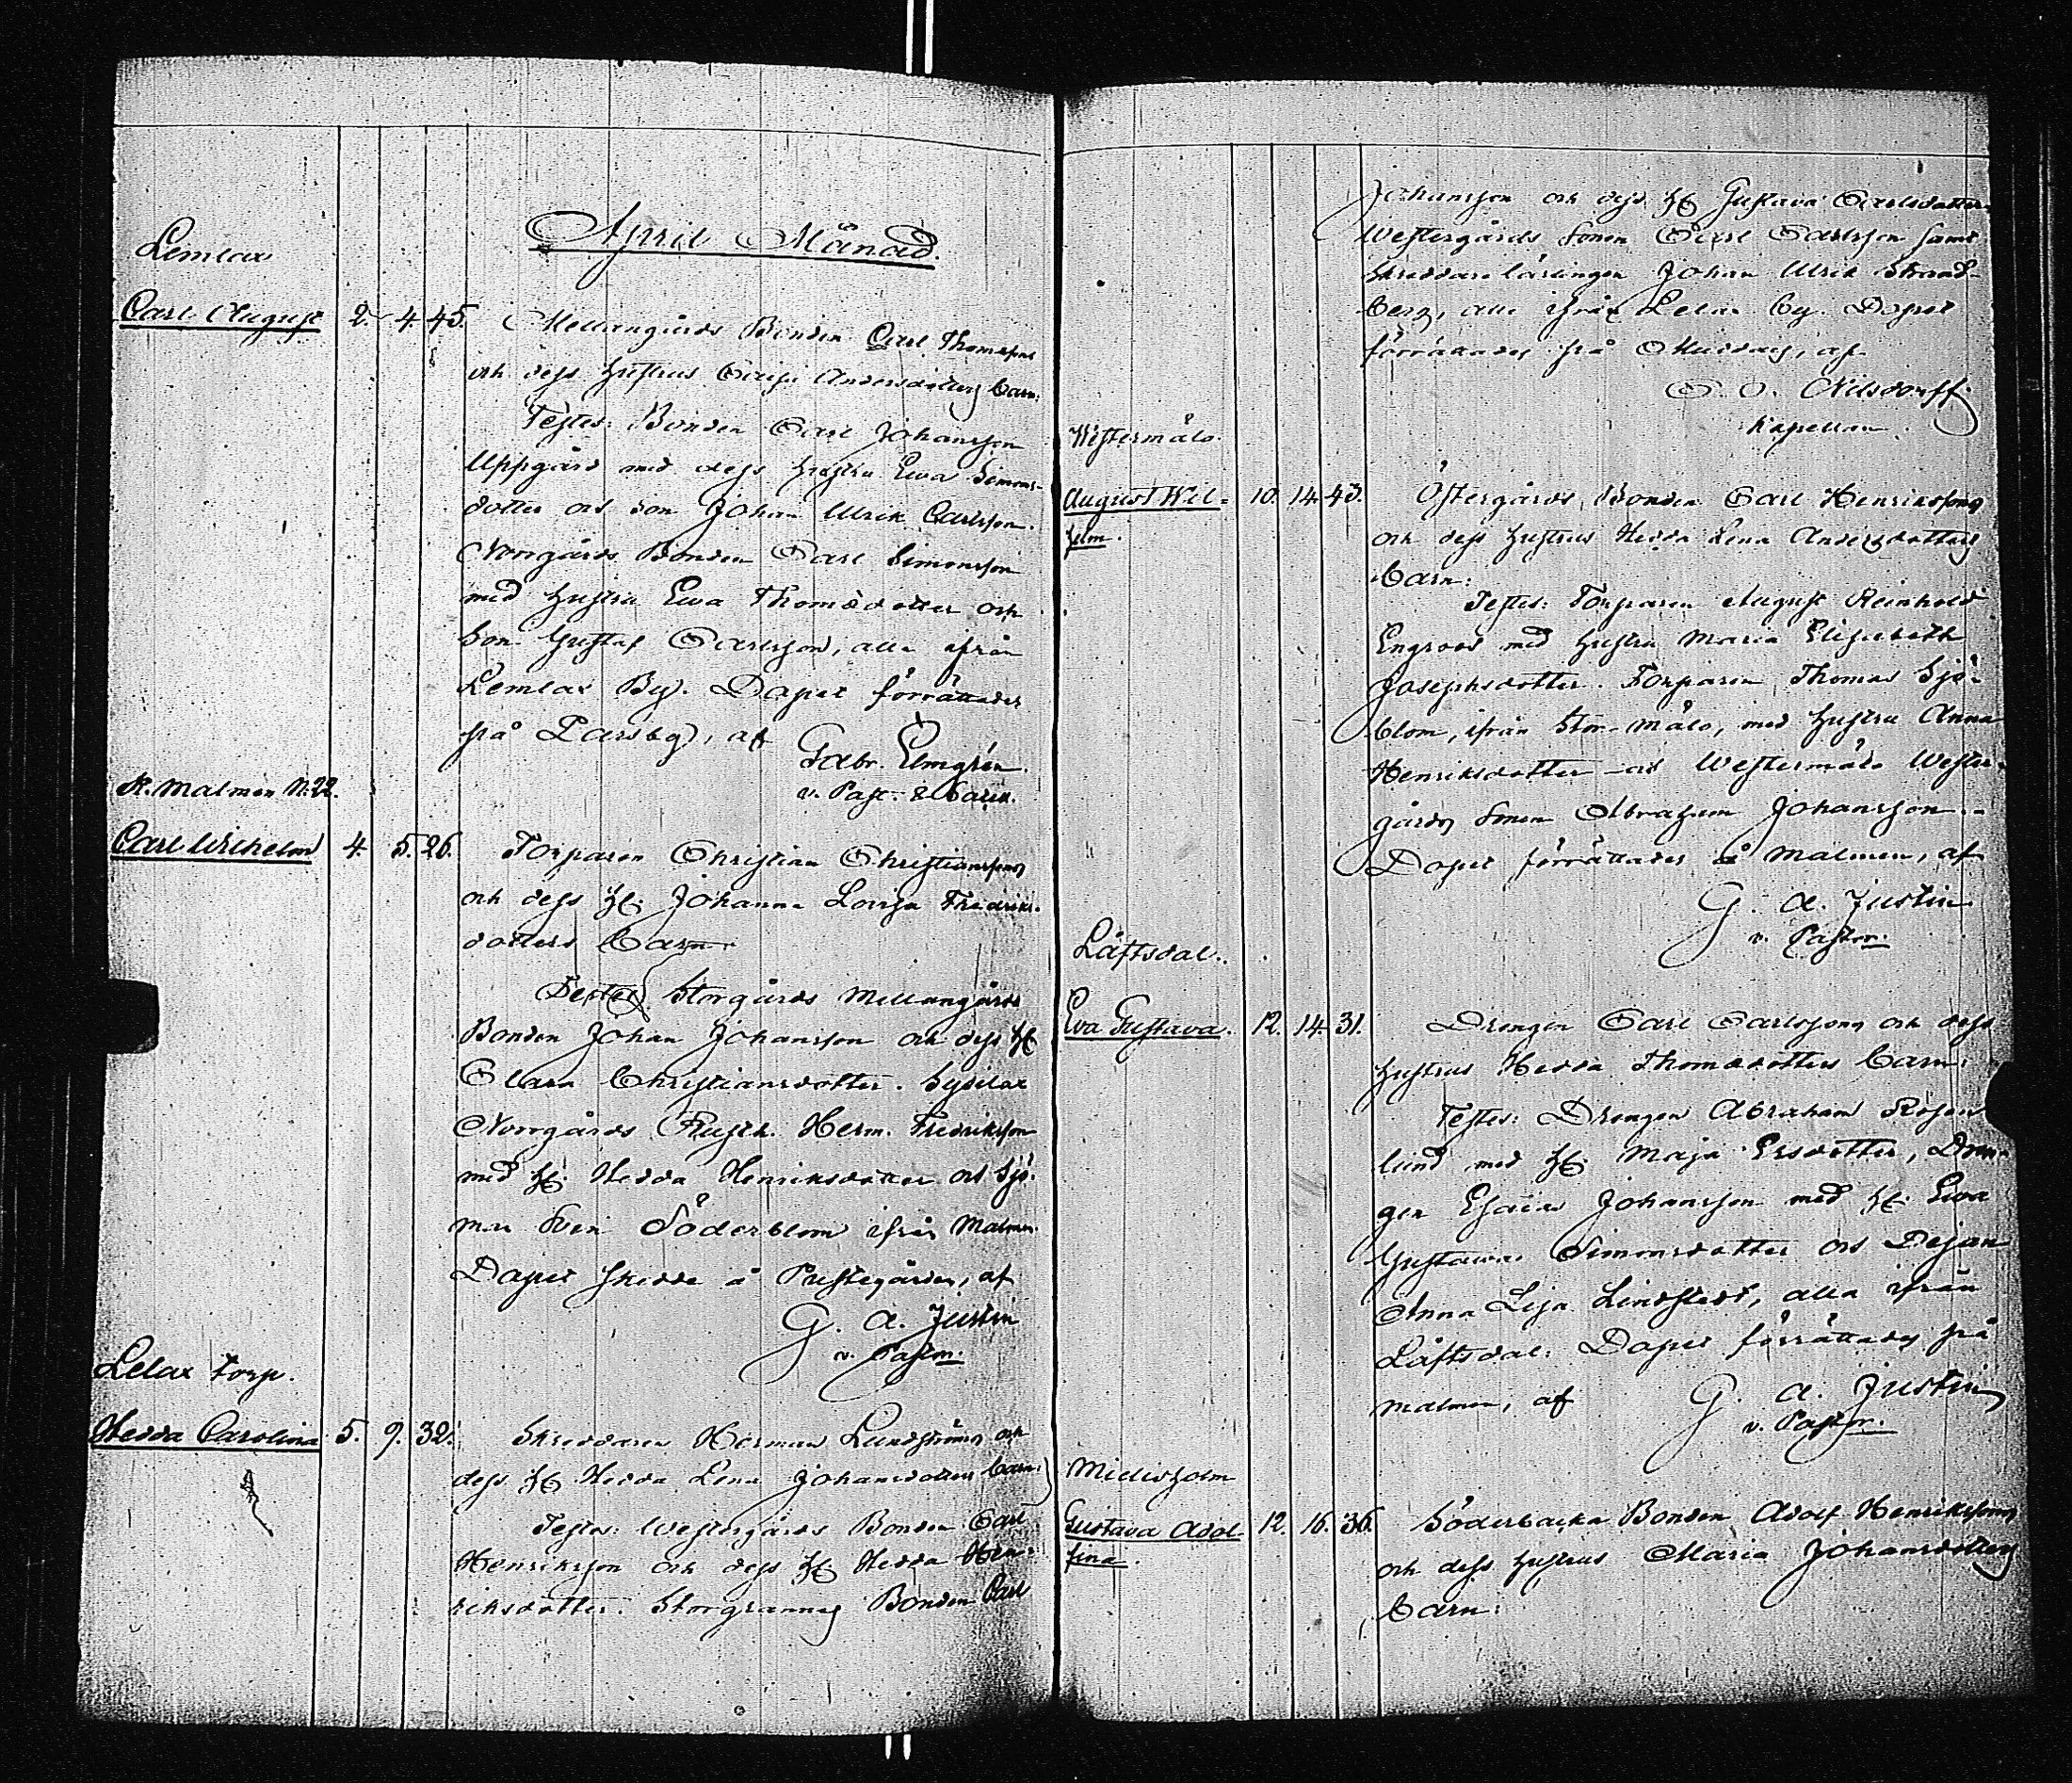 April Månad.
Lemlax
Carl August 2. 4. 45. Mellangårds Bonden Carl Thomassons
och dess hustrus Caisa Andersdotters barn.
Testes: Bonden Carl Johansson
Uppgård med dess hustru Ewa Simons-
dotter och son Johan Ulrik Carlsson.
Norrgårds Bonden Carl Simonsson
med hustru Ewa Thomasdotter och
Son Gustaf Carlsson, alla ifrån
Lemlax By. Dopet förrättades
på Parsby, af
Gabr. Elmgrén.
v. Past. &
K. Malmen N. 22.
Carl Wilhelm 4. 5. 26. Torparen Christian Christianssons
och dess H. Johanna Lovisa Fredriks-
dotters barn
Testes Storgårds Mellangårds
Bonden Johan Johansson och dess H.
Clara Christiansdotter. Sydilax
Norrgårds Rusth. Herm. Fredriksson
med H. Hedda Henriksdotter och Sjö-
man Sven Söderblom ifrån Malmen.
Dopet skedde å Prestegården, af
G. A. Justin
v. Pastor.
Lelax torp.
Hedda Carolina 5. 9. 32. Skreddaren Herman Lundströms och
dess H. Hedda Lena Johansdotters barn:
Testes: Westergårds Bonden Carl
Henriksson och dess H. Hedda Hen-
riksdotter. Storgrannas Bonden Carl
Johansson och dess H. Gustava Carlsdotter
Westergårds Sonen Carl Carlsson samt
Skreddare lärlingen Johan Ulrik Strand-
berg, alla ifrån Lelax by. Dopet
förrättades på Muddais, af
Nilsdorff
Kapellan.
Westermålo.
August Wil- 10. 14. 43. Östergårds Bonden Carl Henrikssons
helm. och dess hustrus Hedda Lena Andersdotters
barn:
Testes: Torparen August Reinhold
Engroos med hustru Maria Elisabeth
Josephsdotter. Torparen Thomas Sjö-
blom, ifrån Stor-målo, med hustru Anna
Henriksdotter och Westermålo Wester-
gårds Sonen Abraham Johansson.
Dopet förrättades å Malmen, af
G. A. Justin
v. Pastor.
Låftsdal.
Eva Gustava. 12. 14. 31. Drengen Carl Carlssons och dess
hustrus Hedda Thomasdotters barn:
Testes: Drengen Abraham Rosen-
lund med H. Maja Ersdotter, Dren-
gen Esaias Johansson med H. Ewa
Gustawa Simonsdotter och Dejan
Anna Lisa Lindstedt, alla ifrån
Låftsdal. Dopet förrättades på
Malmen, af G. A. Justin
v. Pastor.
Mielisholm
Gustava Adol- 12. 16. 36. Söderbacka Bonden Adolf Henrikssons
fina. och dess hustrus Maria Johansdotters
barn: